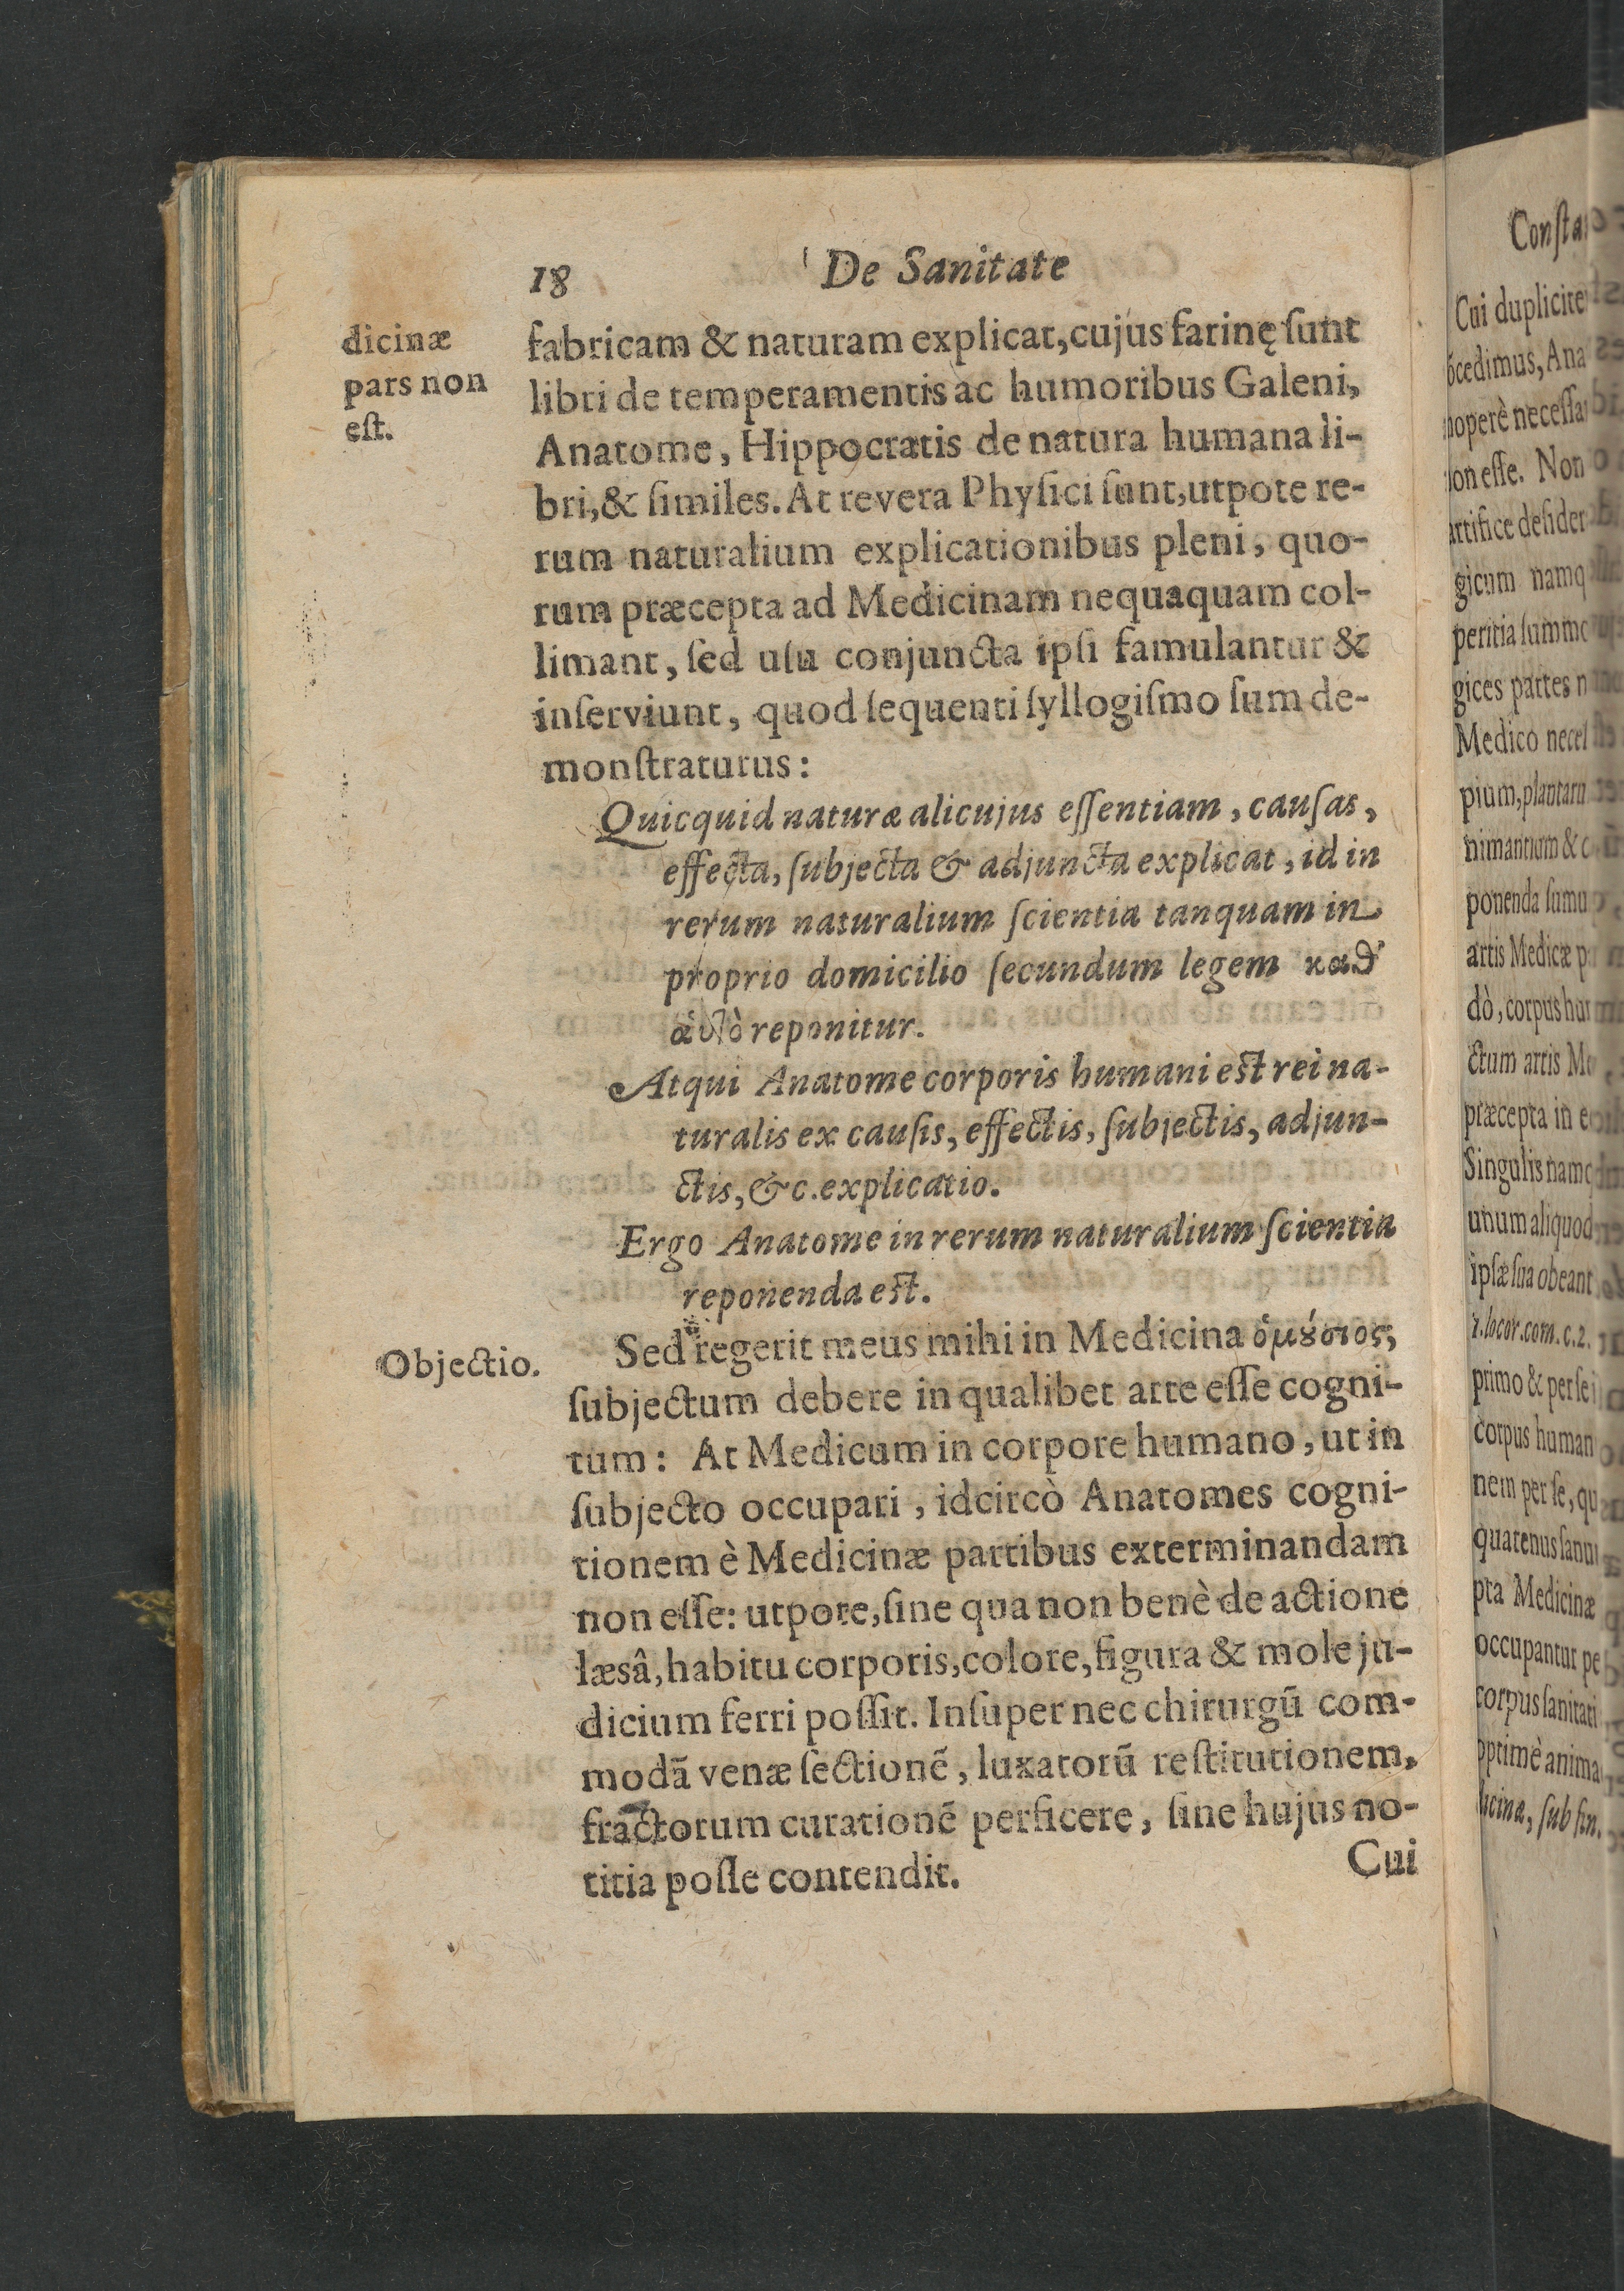 18 De Sanitate
dicinæ
pars non
est.
fabricam & naturam explicat, cujus farinę ſunt
libri de temperamentis ac humoribus Galeni,
Anatome, Hippocratis de natura humana li-
bri, & ſimiles. At revera Phyſici ſunt, utpote re-
rum naturalium explicationibus pleni, quo-
rum præcepta ad Medicinam nequaquam col-
limant, ſed uſu conjuncta ipſi famulantur &
inſerviunt, quod ſequenti ſyllogiſmo ſum de-
monſtraturus:
Quicquid naturæ alicujus eſſentiam, cauſas,
effecta, ſubjecta & adjuncta explicat, id in
rerum naturalium ſcientia tanquam in
proprio domicilio ſecundum legem καθ'
ἀυτὸ reponitur.
Atqui Anatome corporis humani eſt rei na-
turalis ex cauſis, effectis, ſubjectis, adjun-
ctis, &c. explicatio.
Ergo Anatome in rerum naturalium ſcientia
reponenda eſt.
Objectio.
Sed regerit meus mihi in Medicina ὁμούσιος,
ſubjectum debere in qualibet arte eſſe cogni-
tum: At Medicum in corpore humano, ut in
ſubjecto occupari, idcircò Anatomes cogni-
tionem è Medicinæ partibus exterminandam
non eſſe: utpote, ſine qua non benè de actione
læsâ, habitu corporis, colore, figura & mole ju-
dicium ferri poſſit. Inſuper nec chirurgū com-
modā venæ ſectionē, luxatorū reſtitutionem,
fractorum curationē perficere, ſine hujus no-
titia poſſe contendit.
Cui
Cui
cedimus, Ana
operè
eſſe. Non
gicum
peritia
gices partes
Medico
pium,
ponenda
artis Medicæ
dò, corpus
ctum artis
præcepta in
Singulis
unum aliquod
ipſæ ſua obeant
1. locor. com. c. 2.
primo & per ſe
corpus
nem per ſe,
quatenus
pta Medicinæ
occupantur
corpus
optimè
ſub fin.